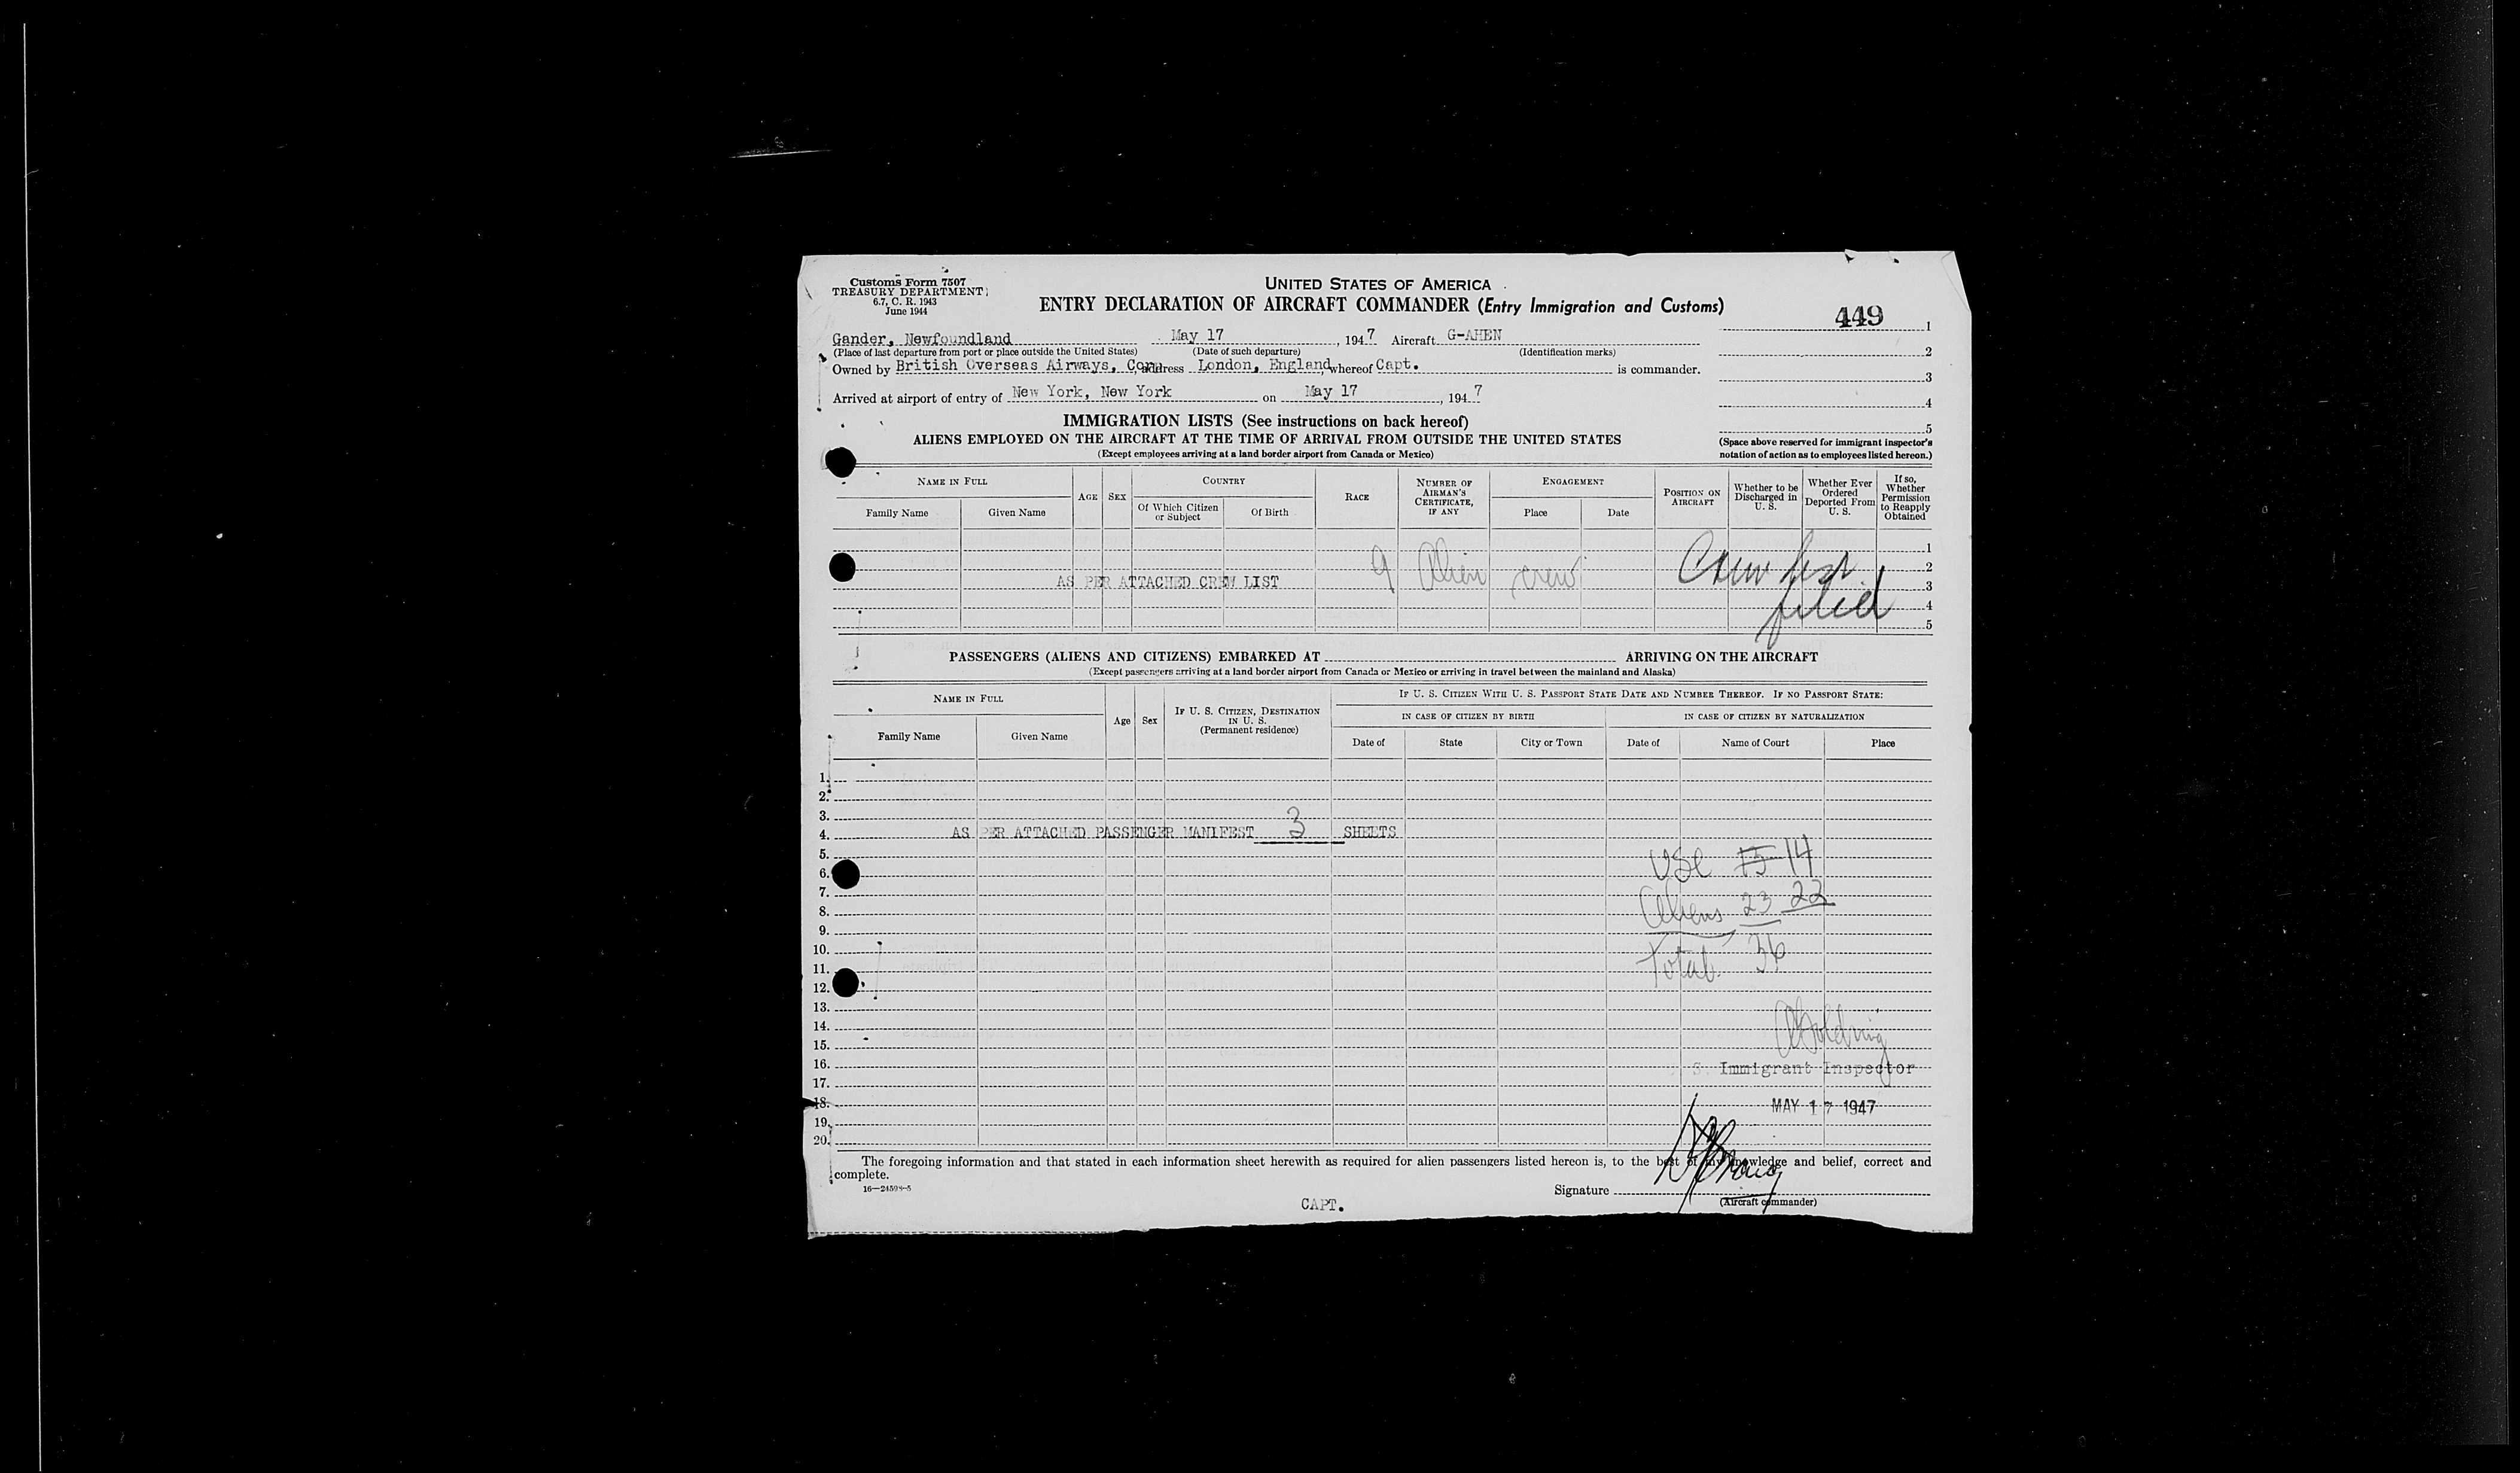 Customs Form 7507
TREASURY DEPARTMENT
6.7, C. R. 1943
June 1944
UNITED STATES OF AMERICA
ENTRY DECLARATION OF AIRCRAFT COMMANDER (Entry Immigration and Customs)
449
Gander, Newfoundland May 17, 1947 Aircraft G-AHEN
(Place of last departure from port or place outside the United States) (Date of such departure) (Identification marks)
Owned by British Overseas Airways, Corp. address London, England, whereof Capt. is commander.
Arrived at airport of entry of New York, New York on May 17, 1947
1
2
3
4
5
(Space above reserved for immigrant inspector's notation of action as to employees listed hereon.)
IMMIGRATION LISTS (See instructions on back hereof)
ALIENS EMPLOYED ON THE AIRCRAFT AT THE TIME OF ARRIVAL FROM OUTSIDE THE UNITED STATES
(Except employees arriving at a land border airport from Canada or Mexico)
NAME IN FULL
Family Name Given Name
AGE SEX
COUNTRY
Of Which Citizen or Subject Of Birth
RACE
NUMBER OF AIRMAN'S CERTIFICATE, IF ANY
ENGAGEMENT
Place Date
POSITION ON AIRCRAFT
Whether to be Discharged in U. S.
Whether Ever Ordered Deported From U. S.
If so, Whether Permission to Reapply Obtained
1
2
3
4
5
AS PER ATTACHED CREW LIST 9 Alien crew
Crew list
filed
PASSENGERS (ALIENS AND CITIZENS) EMBARKED AT ARRIVING ON THE AIRCRAFT
(Except passengers arriving at a land border airport from Canada or Mexico or arriving in travel between the mainland and Alaska)
NAME IN FULL
Family Name Given Name
Age Sex
IF U. S. CITIZEN, DESTINATION IN U. S.
(Permanent residence)
IF U. S. CITIZEN WITH U. S. PASSPORT STATE DATE AND NUMBER THEREOF. IF NO PASSPORT STATE:
IN CASE OF CITIZEN BY BIRTH IN CASE OF CITIZEN BY NATURALIZATION
Date of State City or Town Date of Name of Court Place
1.
2.
3.
4. AS PER ATTACHED PASSENGER MANIFEST 3 SHEETS
5.
6. USC 15 14
7.
8. Aliens 23 22
9.
10. Total 36
11.
12.
13.
14.
15.
16. S. Immigrant Inspector
17.
18. MAY 17 1947
19.
20.
The foregoing information and that stated in each information sheet herewith as required for alien passengers listed hereon is, to the best of my knowledge and belief, correct and
complete.
16—24598-5
Signature
(Aircraft commander)
CAPT.